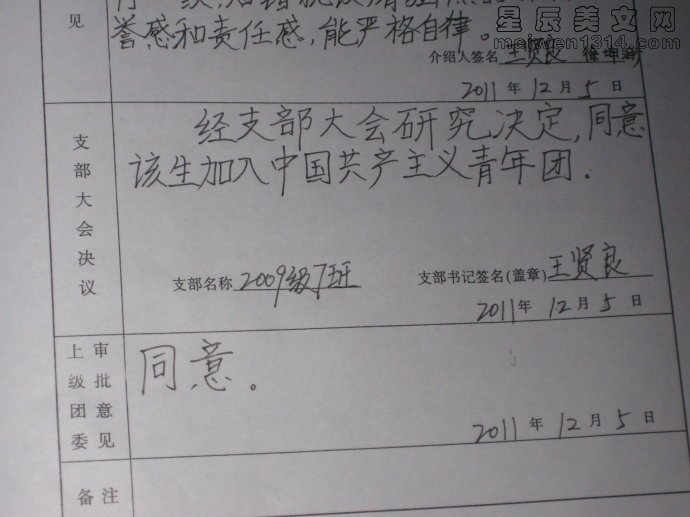 星辰美文网
meiwen1314.com
见
誉感和责任感,能严格自律。
介绍人签名 王贤良
2011年12月5日
支部大会决议
经支部大会研究决定,同意
该生加入中国共产主义青年团.
支部名称 2009级7班 支部书记签名(盖章) 王贤良
2011年12月5日
上级团委审批意见
同意。
2011年12月5日
备注